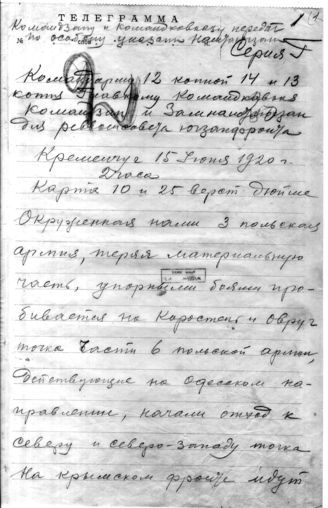 ТЕЛЕГРАММА
Комюгзапу и Командкавказу передать
по особому указан
№
Серия Г
Командарму 12 конной 14 и 13
копия Главкому Командкавказа
Комюгзап и
для реввоенсовета югзапфронта
Кременчуг 15 Июня 1920 г.
2 часа
Карта 10 и 25 верст дюйме
Окруженная нами 3 польская
армия, теряя материальную
часть, упорными боями про-
бивается на Коростень и Овруч
точка Части 6 польской армии,
действующие на Одесском на-
правлении, начали отход к
северу и северо-западу точка
На крымском фронте идут